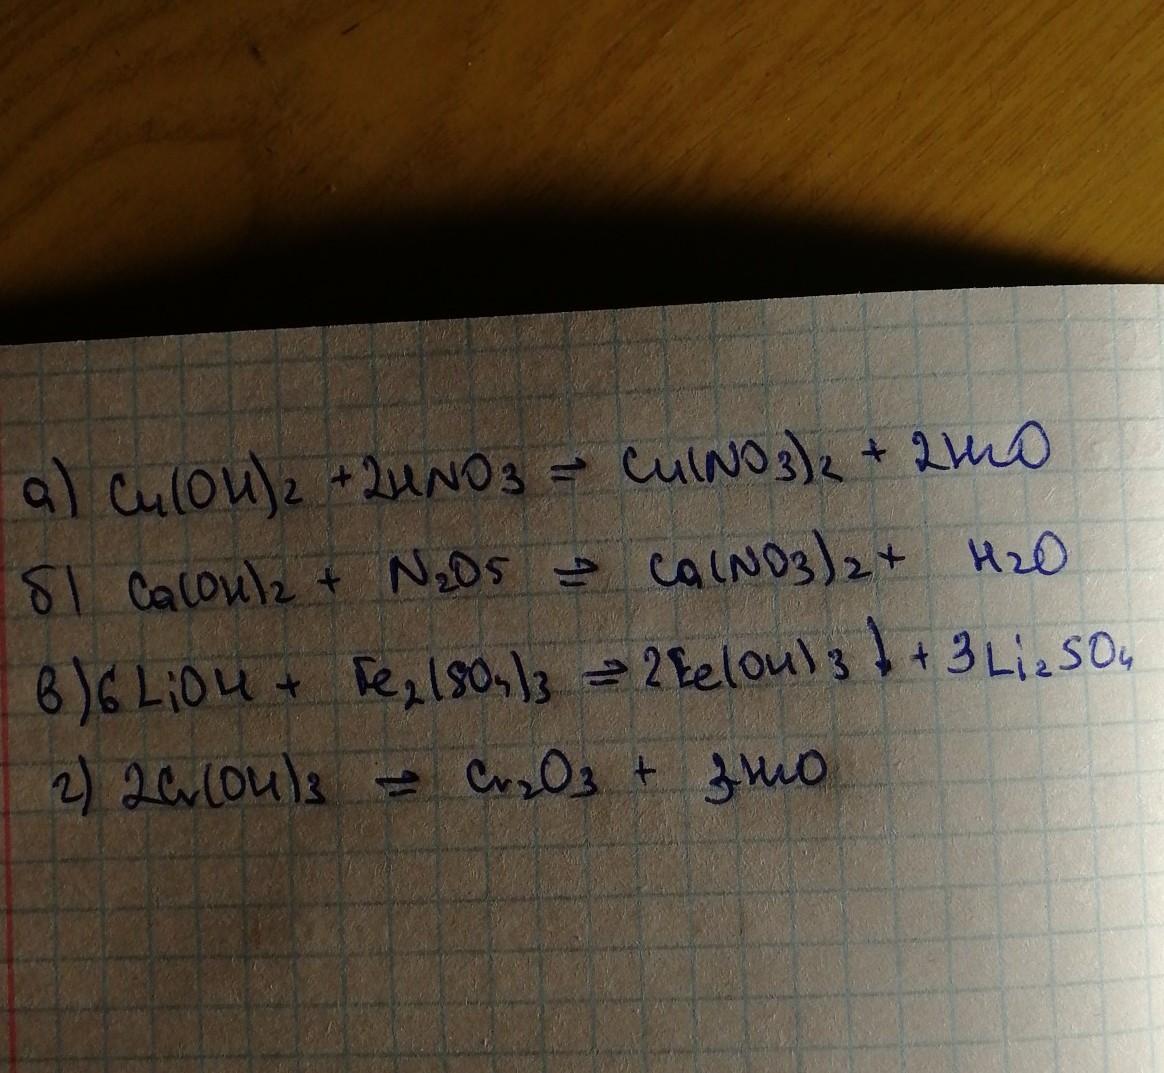 а) Cu(OH)2 + 2HNO3 ⇌ Cu(NO3)2 + 2H2O
б) Ca(OH)2 + N2O5 ⇌ Ca(NO3)2 + H2O
в) 6LiOH + Fe2(SO4)3 ⇌ 2Fe(OH)3↓ + 3Li2SO4
г) 2Cr(OH)3 ⇌ Cr2O3 + 3H2O